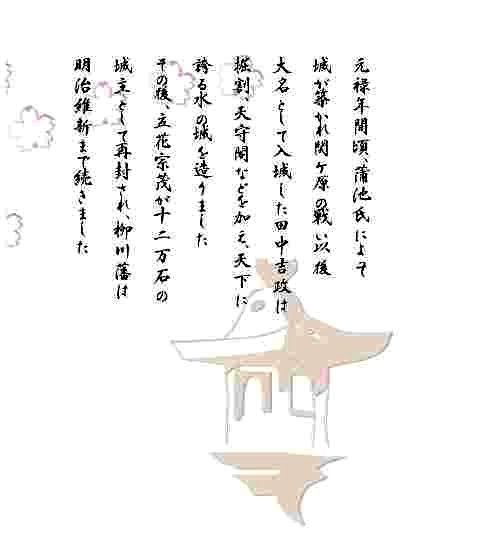 元禄年間頃、蒲池氏によそ
城が築かれ関ケ原の戦い以後
大名として入城した田中吉政は
掘割、天守閣などを加え、天下に
誇る水の城を造りました
その後、立花宗茂が十二万石の
城主として再封され、柳川藩は
明治維新まで続きました